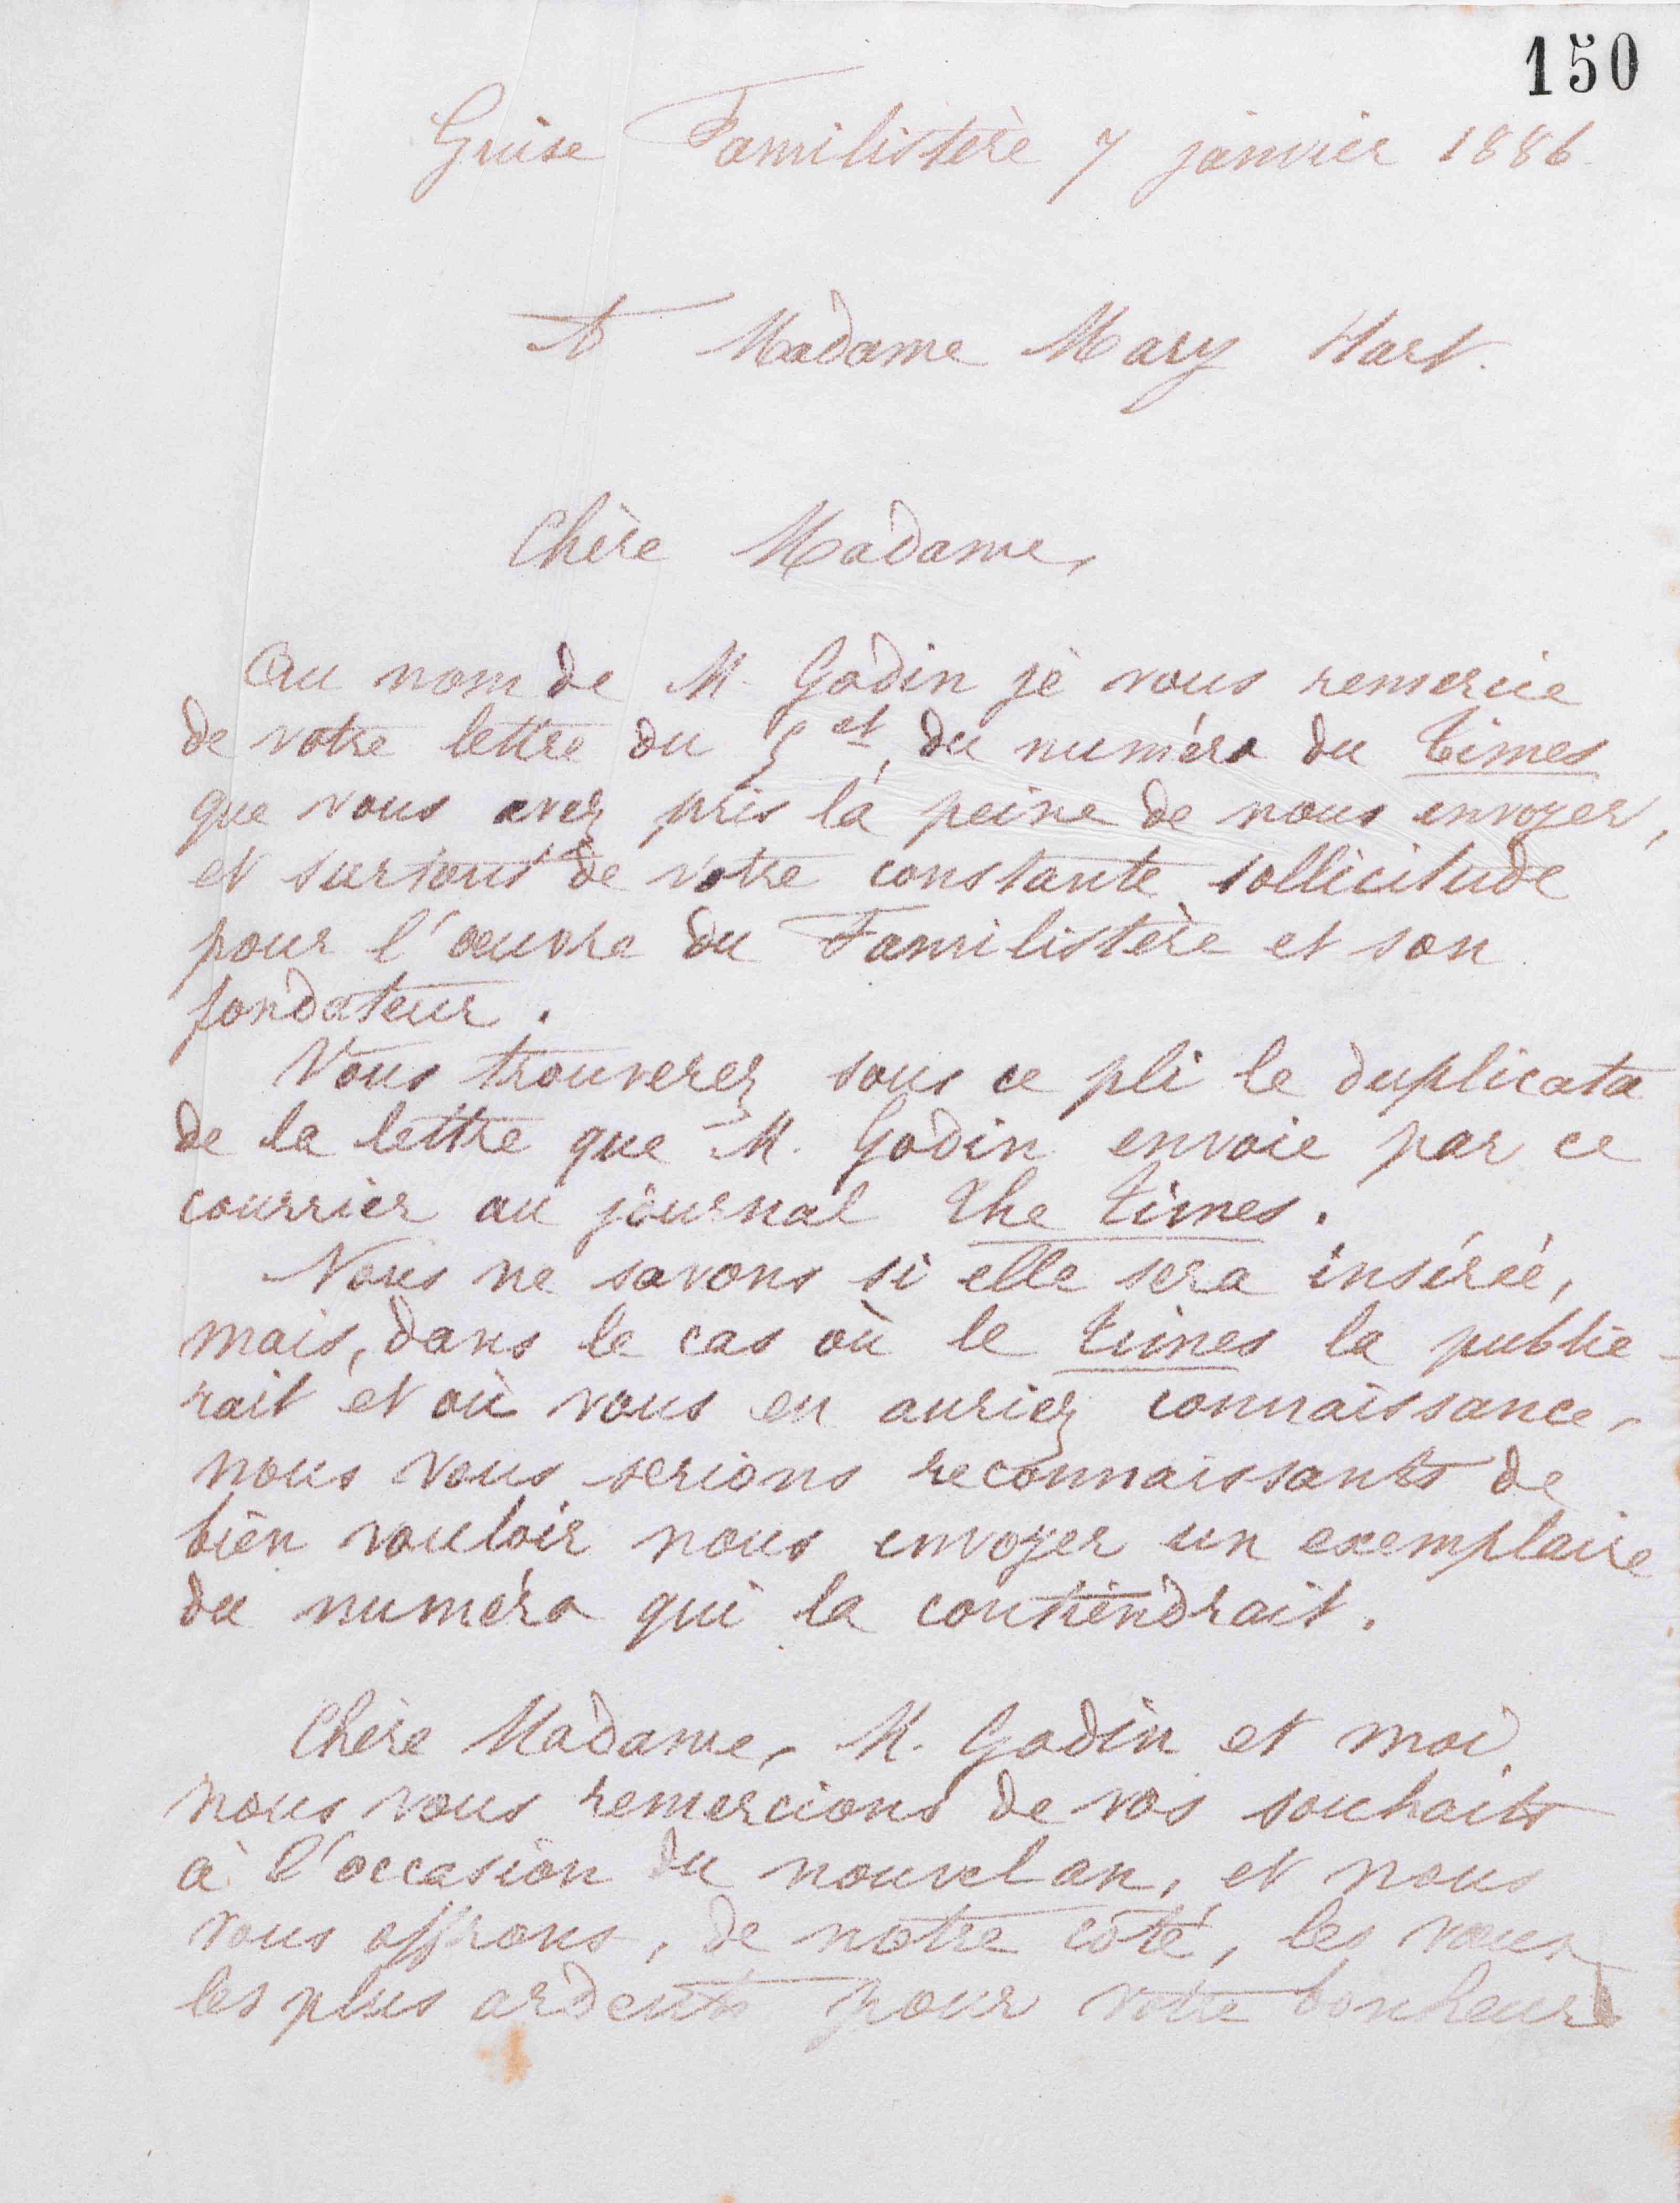 150
Guise Familistère 7 janvier 1886
A Madame Mary Hart.
Chère Madame,
Au nom de M. Godin je vous remercie
de votre lettre du 5 et, du numéro du times
que vous avez pris la peine de nous envoyer,
et surtout de votre constante sollicitude
pour l'œuvre du Familistère et son
fondateur.
Vous trouverez sous ce pli le duplicata
de la lettre que M. Godin envoie par ce
courrier au journal the times.
Nous ne savons si elle sera insérée,
mais, dans le cas où le times la publie-
rait et où vous en auriez connaissance,
nous vous serions reconnaissants de
bien vouloir nous envoyer un exemplaire
du numéro qui la contiendrait.
Chère Madame, M. Godin et moi
nous vous remercions de vos souhaits
à l'occasion du nouvel an, et nous
vous offrons, de notre côté, les vœux
les plus ardents pour votre bonheur